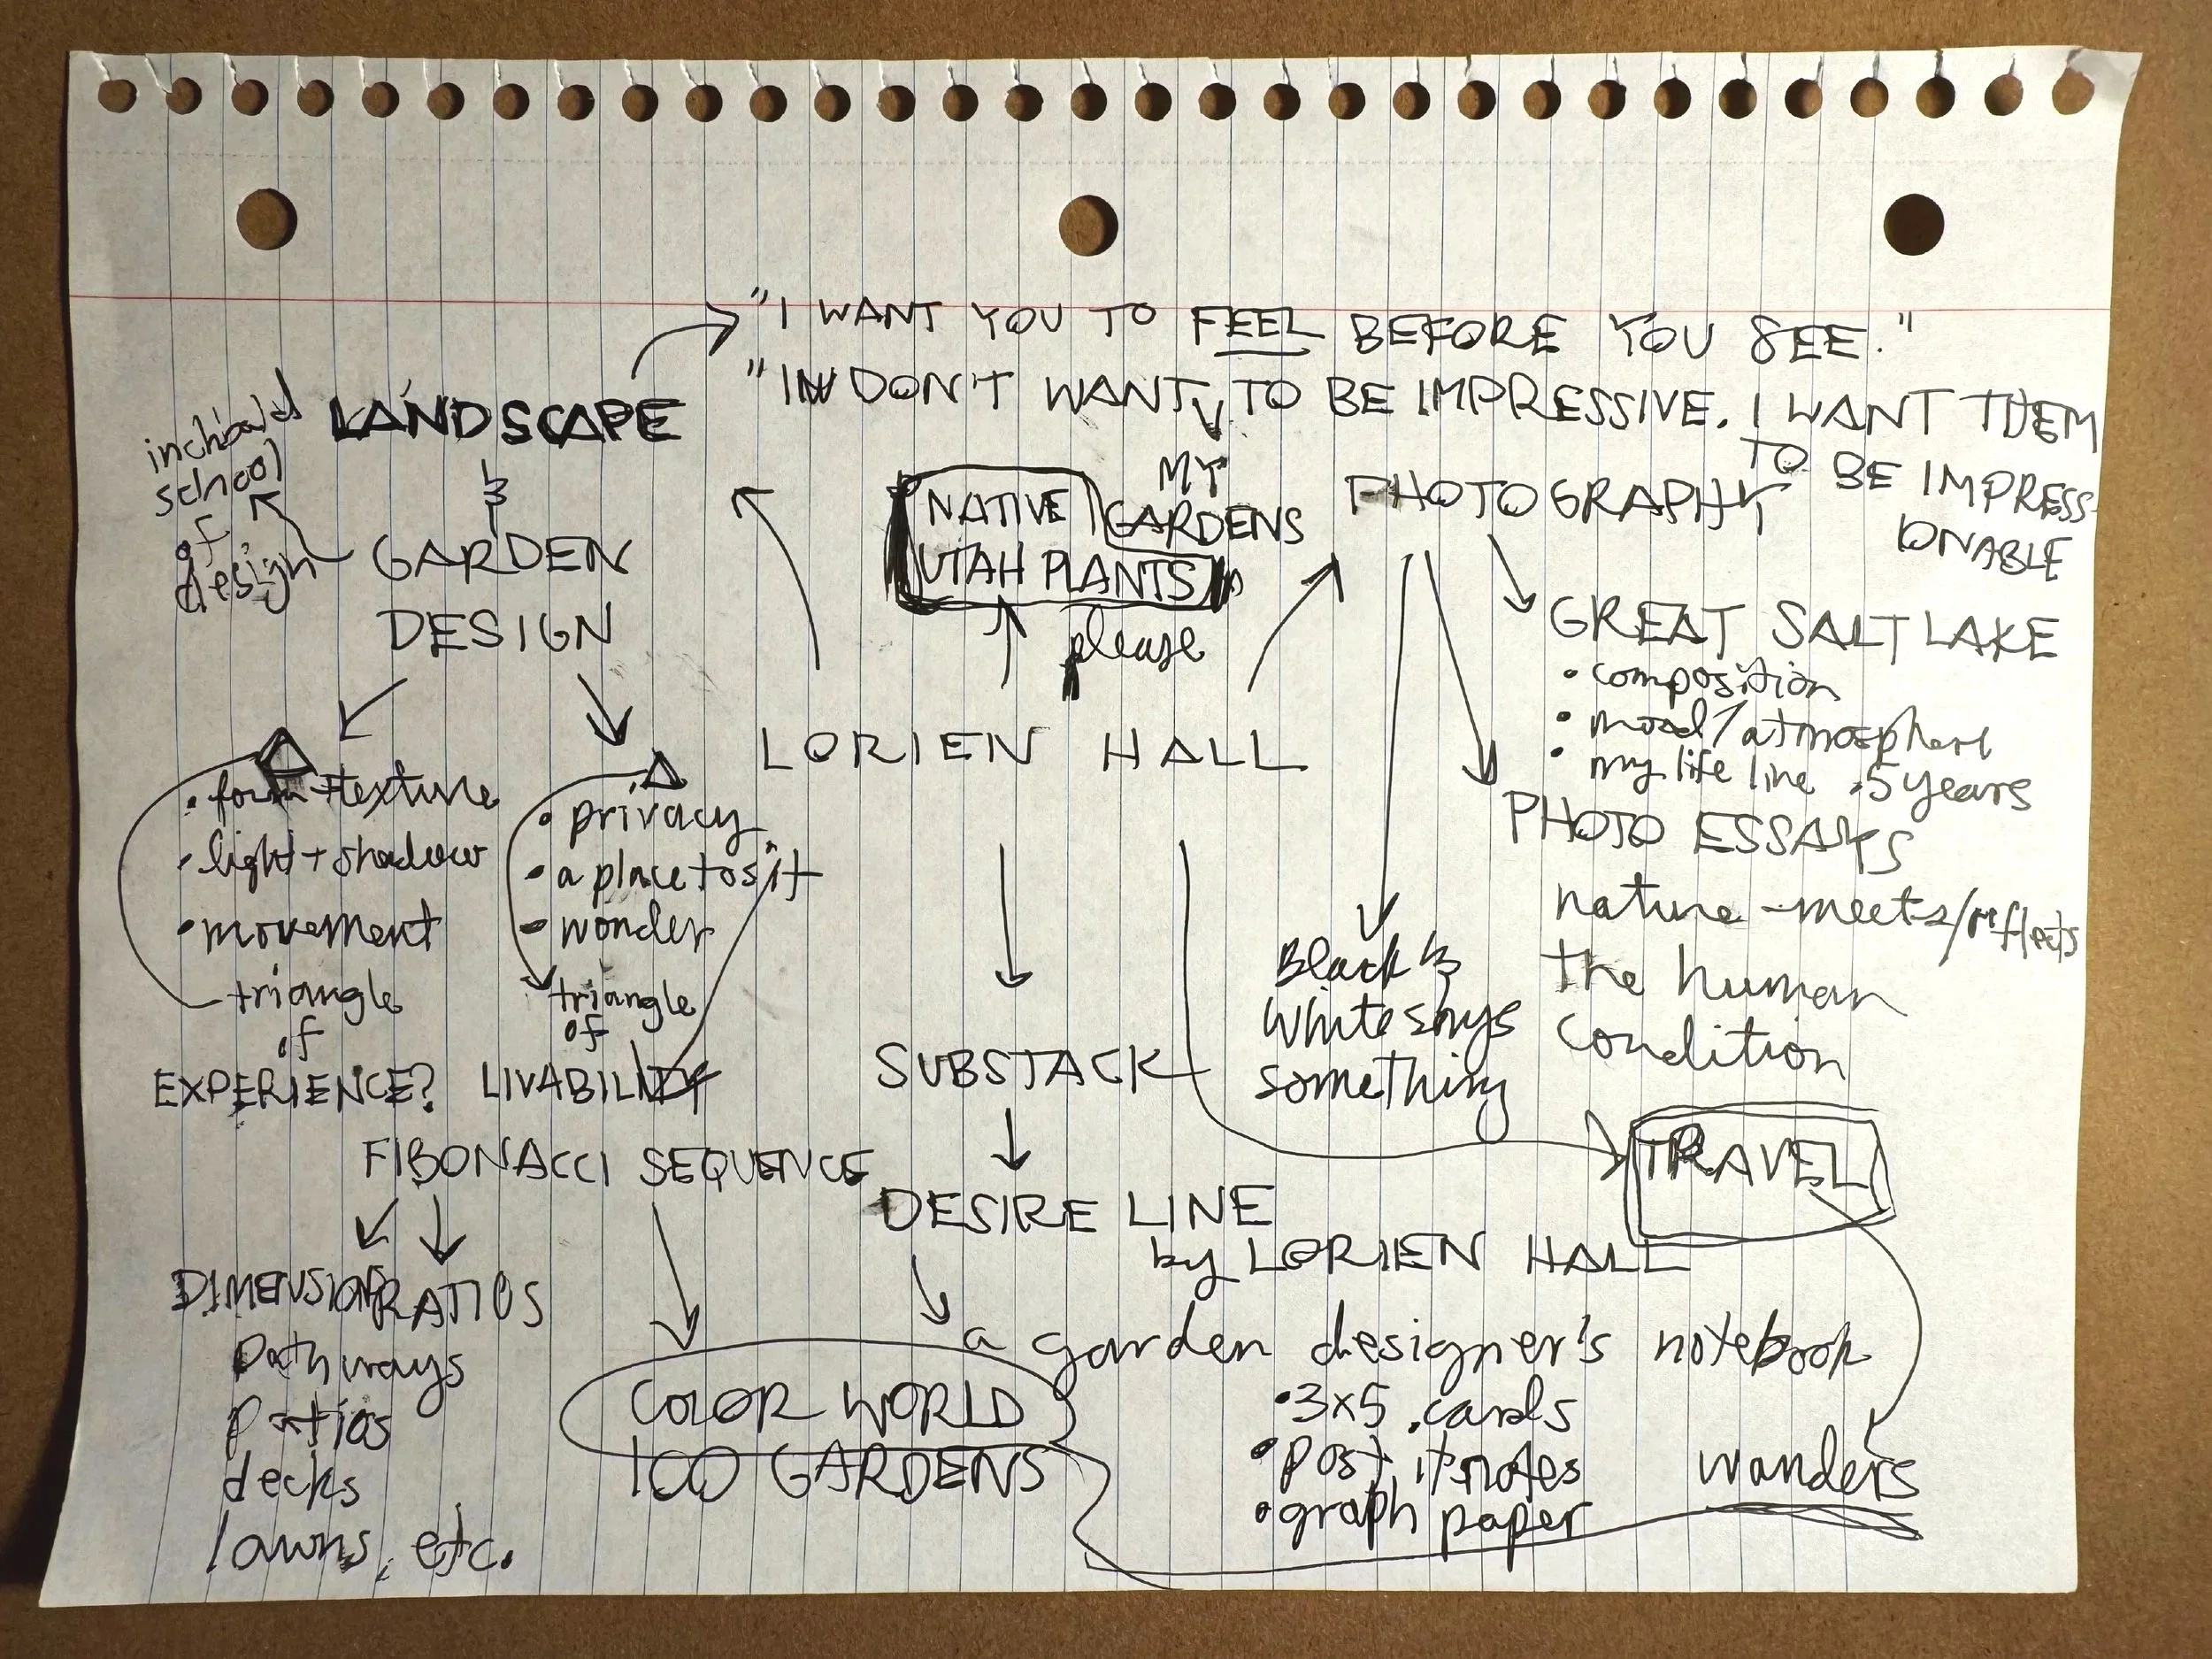 "I WANT YOU TO FEEL BEFORE YOU SEE."
"I DON'T WANT TO BE IMPRESSIVE. I WANT THEM
TO BE IMPRESS-
IONABLE
MY
GARDENS
inchbald
school
of
design
LANDSCAPE
&
GARDEN
DESIGN
NATIVE
UTAH PLANTS
please
PHOTOGRAPHY
GREAT SALT LAKE
• composition
• mood/atmosphere
• my life line .5 years
PHOTO ESSAYS
nature-meets/reflects
the human
condition
Black &
White says
something
LORIEN HALL
• form + texture
• light + shadow
• movement
triangle
of
EXPERIENCE?
• privacy
• a place to sit
• wonder
triangle
of
LIVABILITY
FIBONACCI SEQUENCE
DIMENSIONS
RATIOS
pathways
patios
decks
lawns, etc.
COLOR WORLD
100 GARDENS
SUBSTACK
DESIRE LINE
by LORIEN HALL
a garden designer's notebook
• 3x5 cards
• post it notes
• graph paper
TRAVEL
wanders